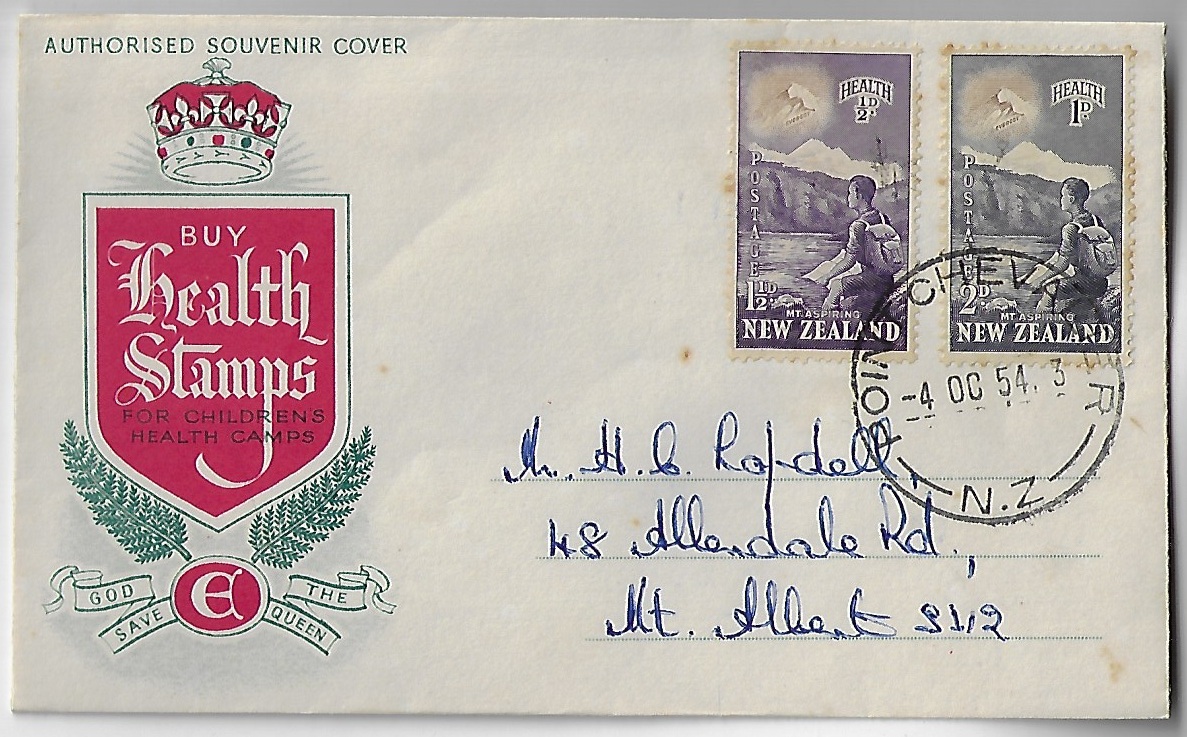 AUTHORISED SOUVENIR COVER
BUY
Health
Stamps
FOR CHILDREN'S
HEALTH CAMPS
GOD SAVE E THE QUEEN
EVEREST
HEALTH
½D.
POSTAGE
1½D.
MT. ASPIRING
NEW ZEALAND
EVEREST
HEALTH
1D.
POSTAGE
2D.
MT. ASPIRING
NEW ZEALAND
POINT CHEVALIER
-4 OC 54. 3
N.Z
Mr. H. C.
48 Allendale Rd.,
Mt. Albert SW2